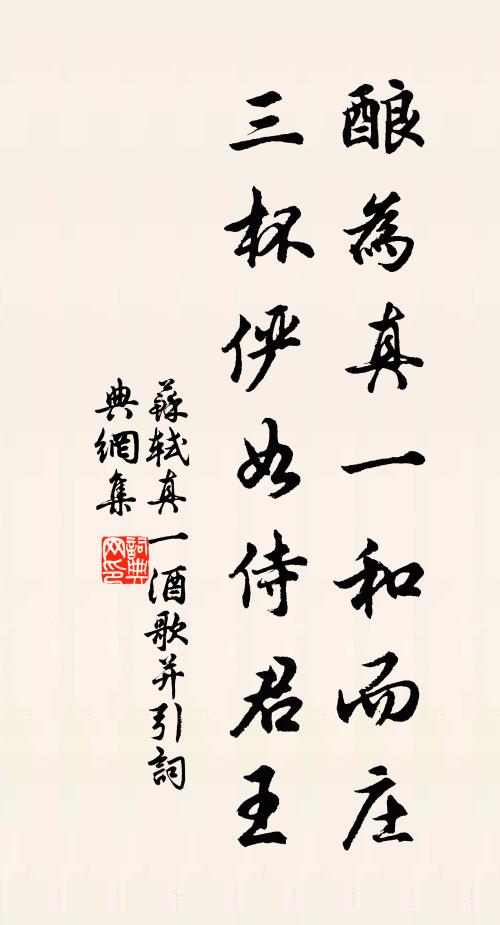 酿為真一和而庄
三杯俨如侍君王
蘇軾真一酒歌并引詞
典網集
詞典
网印